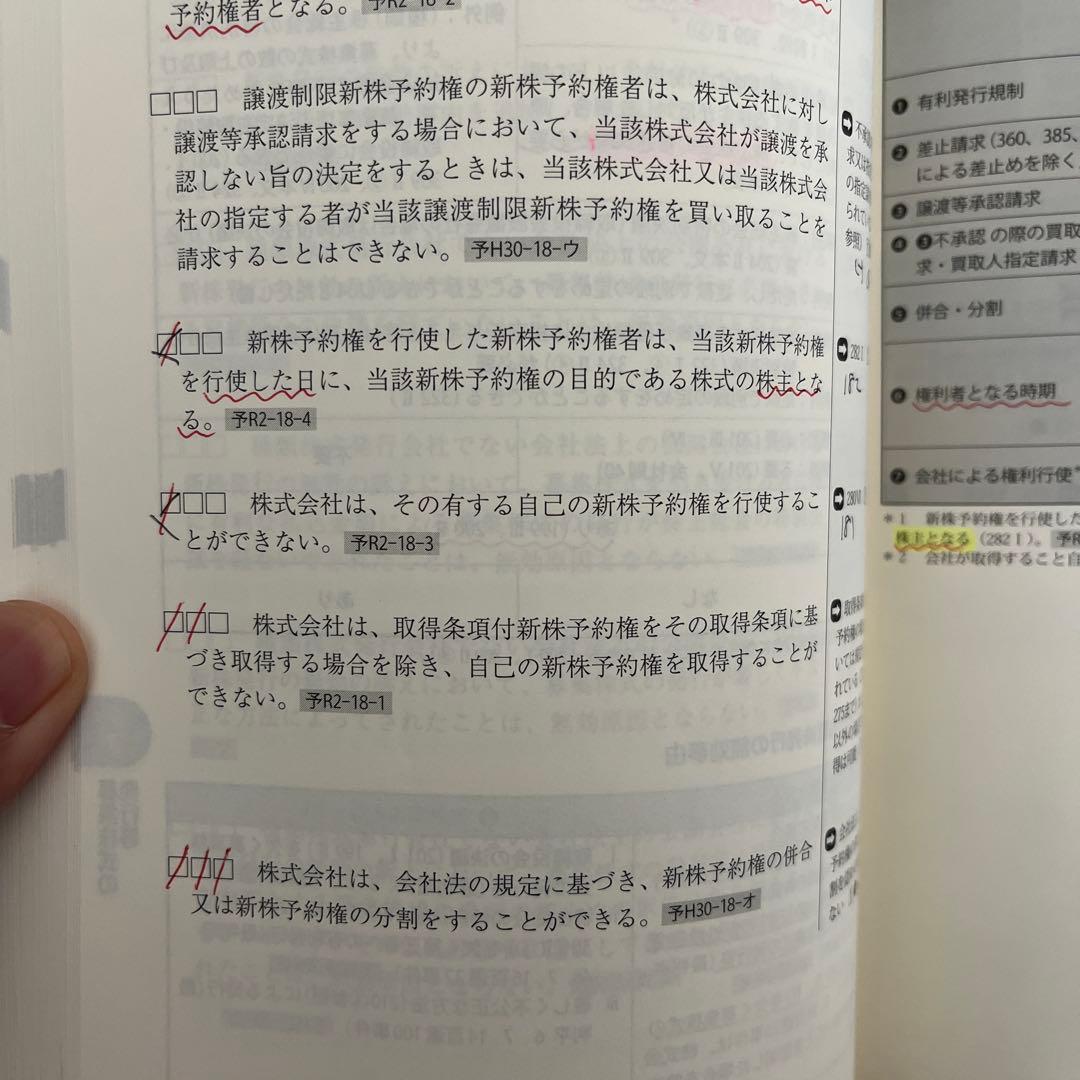 予約権者となる。 予R2-18-2
□□□ 譲渡制限新株予約権の新株予約権者は、株式会社に対し
譲渡等承認請求をする場合において、当該株式会社が譲渡を承
認しない旨の決定をするときは、当該株式会社又は当該株式会
社の指定する者が当該譲渡制限新株予約権を買い取ることを
請求することはできない。 予H30-18-ウ
□□□ 新株予約権を行使した新株予約権者は、当該新株予約権
を行使した日に、当該新株予約権の目的である株式の株主とな
る。 予R2-18-4
□□□ 株式会社は、その有する自己の新株予約権を行使するこ
とができない。 予R2-18-3
□□□ 株式会社は、取得条項付新株予約権をその取得条項に基
づき取得する場合を除き、自己の新株予約権を取得することが
できない。 予R2-18-1
□□□ 株式会社は、会社法の規定に基づき、新株予約権の併合
又は新株予約権の分割をすることができる。 予H30-18-オ
➡ 不承
求又は
の指定
られてい
参照）
➡ 282Ⅰ
➡ 280Ⅵ
➡ 取得条
予約権
いては
れている
275まで
以外の
得は可能
➡ 会社
予約権
割を
ない
❶ 有利発行規制
❷ 差止請求（360、385、
による差止めを除く
❸ 譲渡等承認請求
❹ ❸不承認の際の買取
求・買取人指定請求
❺ 併合・分割
❻ 権利者となる時期
❼ 会社による権利行使
＊1 新株予約権を行使した
株主となる（282Ⅰ）。 予R
＊2 会社が取得すること自